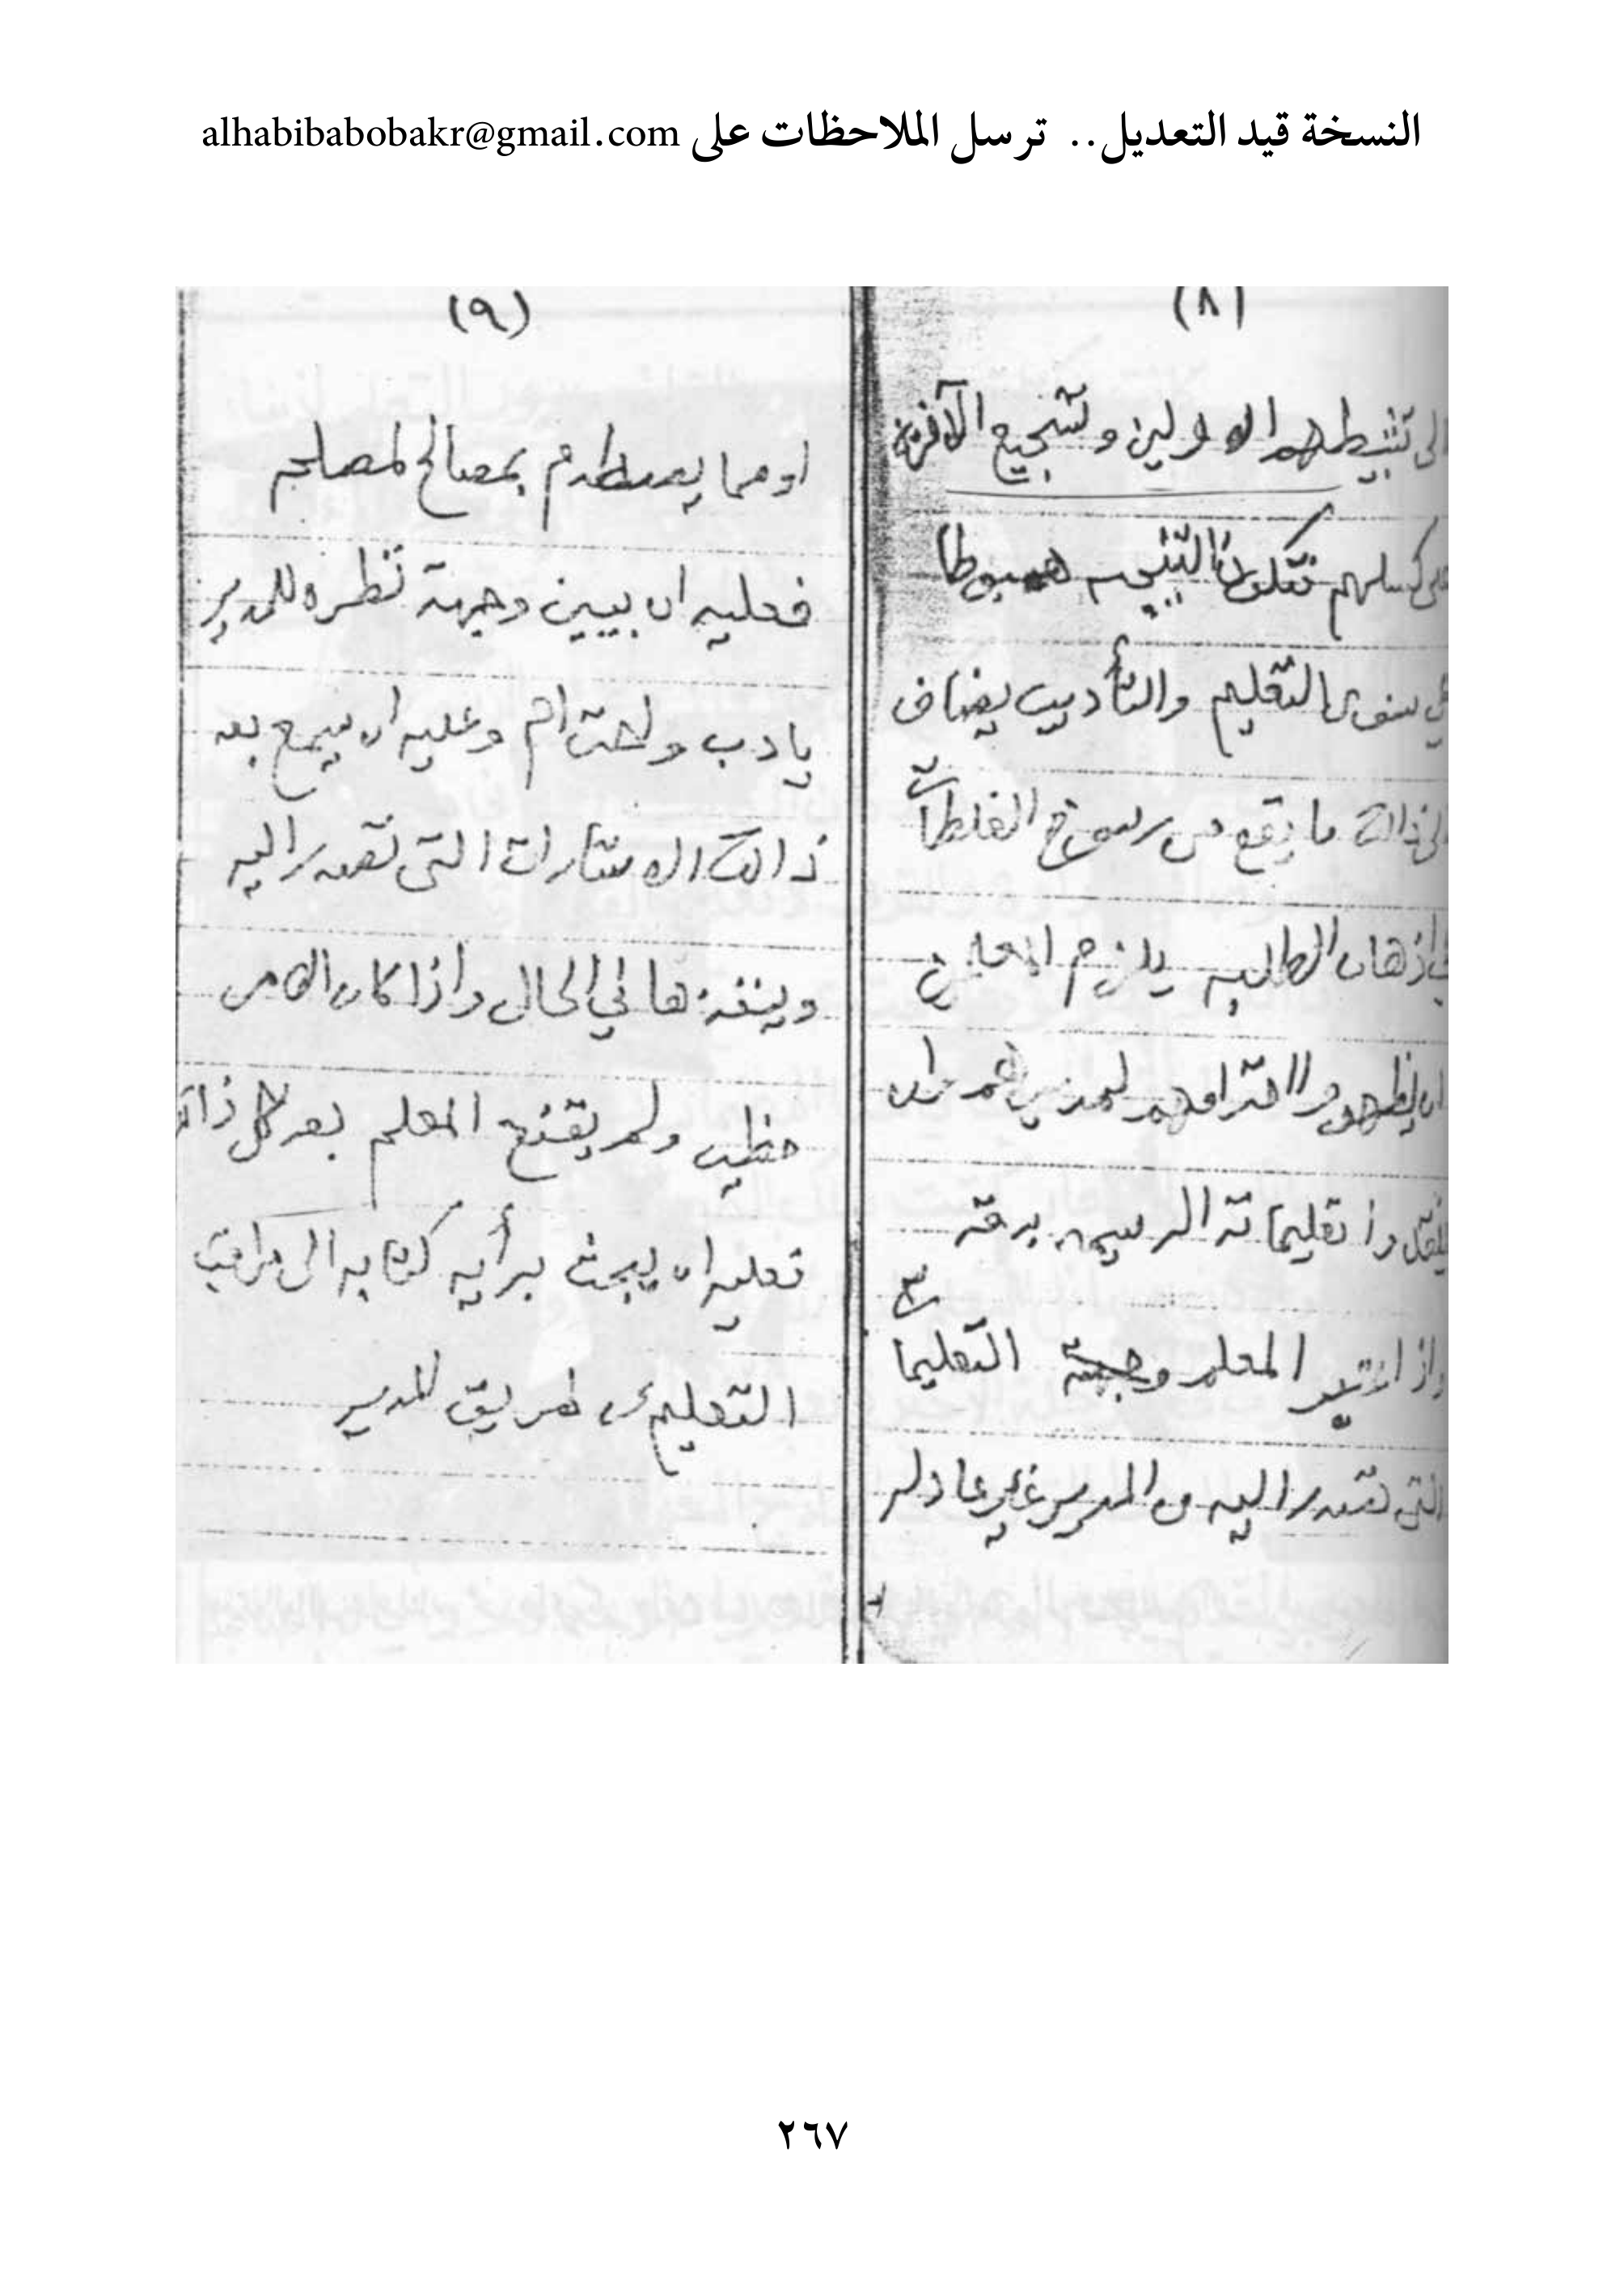 النسخة قيد التعديل.. ترسل الملاحظات على alhabibabobakr@gmail.com
(٨)
الى تثبيطهم الاولين وتشجيع الآخرين
على كسلهم فتكون النتيجه هبوطا
في مستوى التعليم والتأديب يضاف
الى ذالك ما يقع من رسوخ الغلطات
في اذهان الطلبه يلزم المعلمين
ان يظهروا احترامهم لمديرهم وان
ينفذوا تعليماته الرسميه بدقه
واذا اعتبر المعلم التعليمات
التي تصدر اليه من المدير غير عادله
(٩)
او مما يصطدم بمصالح المصلحه
فعليه ان يبين وجهة نظره للمدير
بادب واحترام وعليه ان يتبع بعد
ذالك الاشارات التي تصدر اليه
وينفذها في الحال واذا كان الامر
خطير ولم يقتنع المعلم بعد كل ذالك
فعليه ان يبعث برأيه كتابه الى مراقب
التعليم عن طريق المدير
٢٦٧